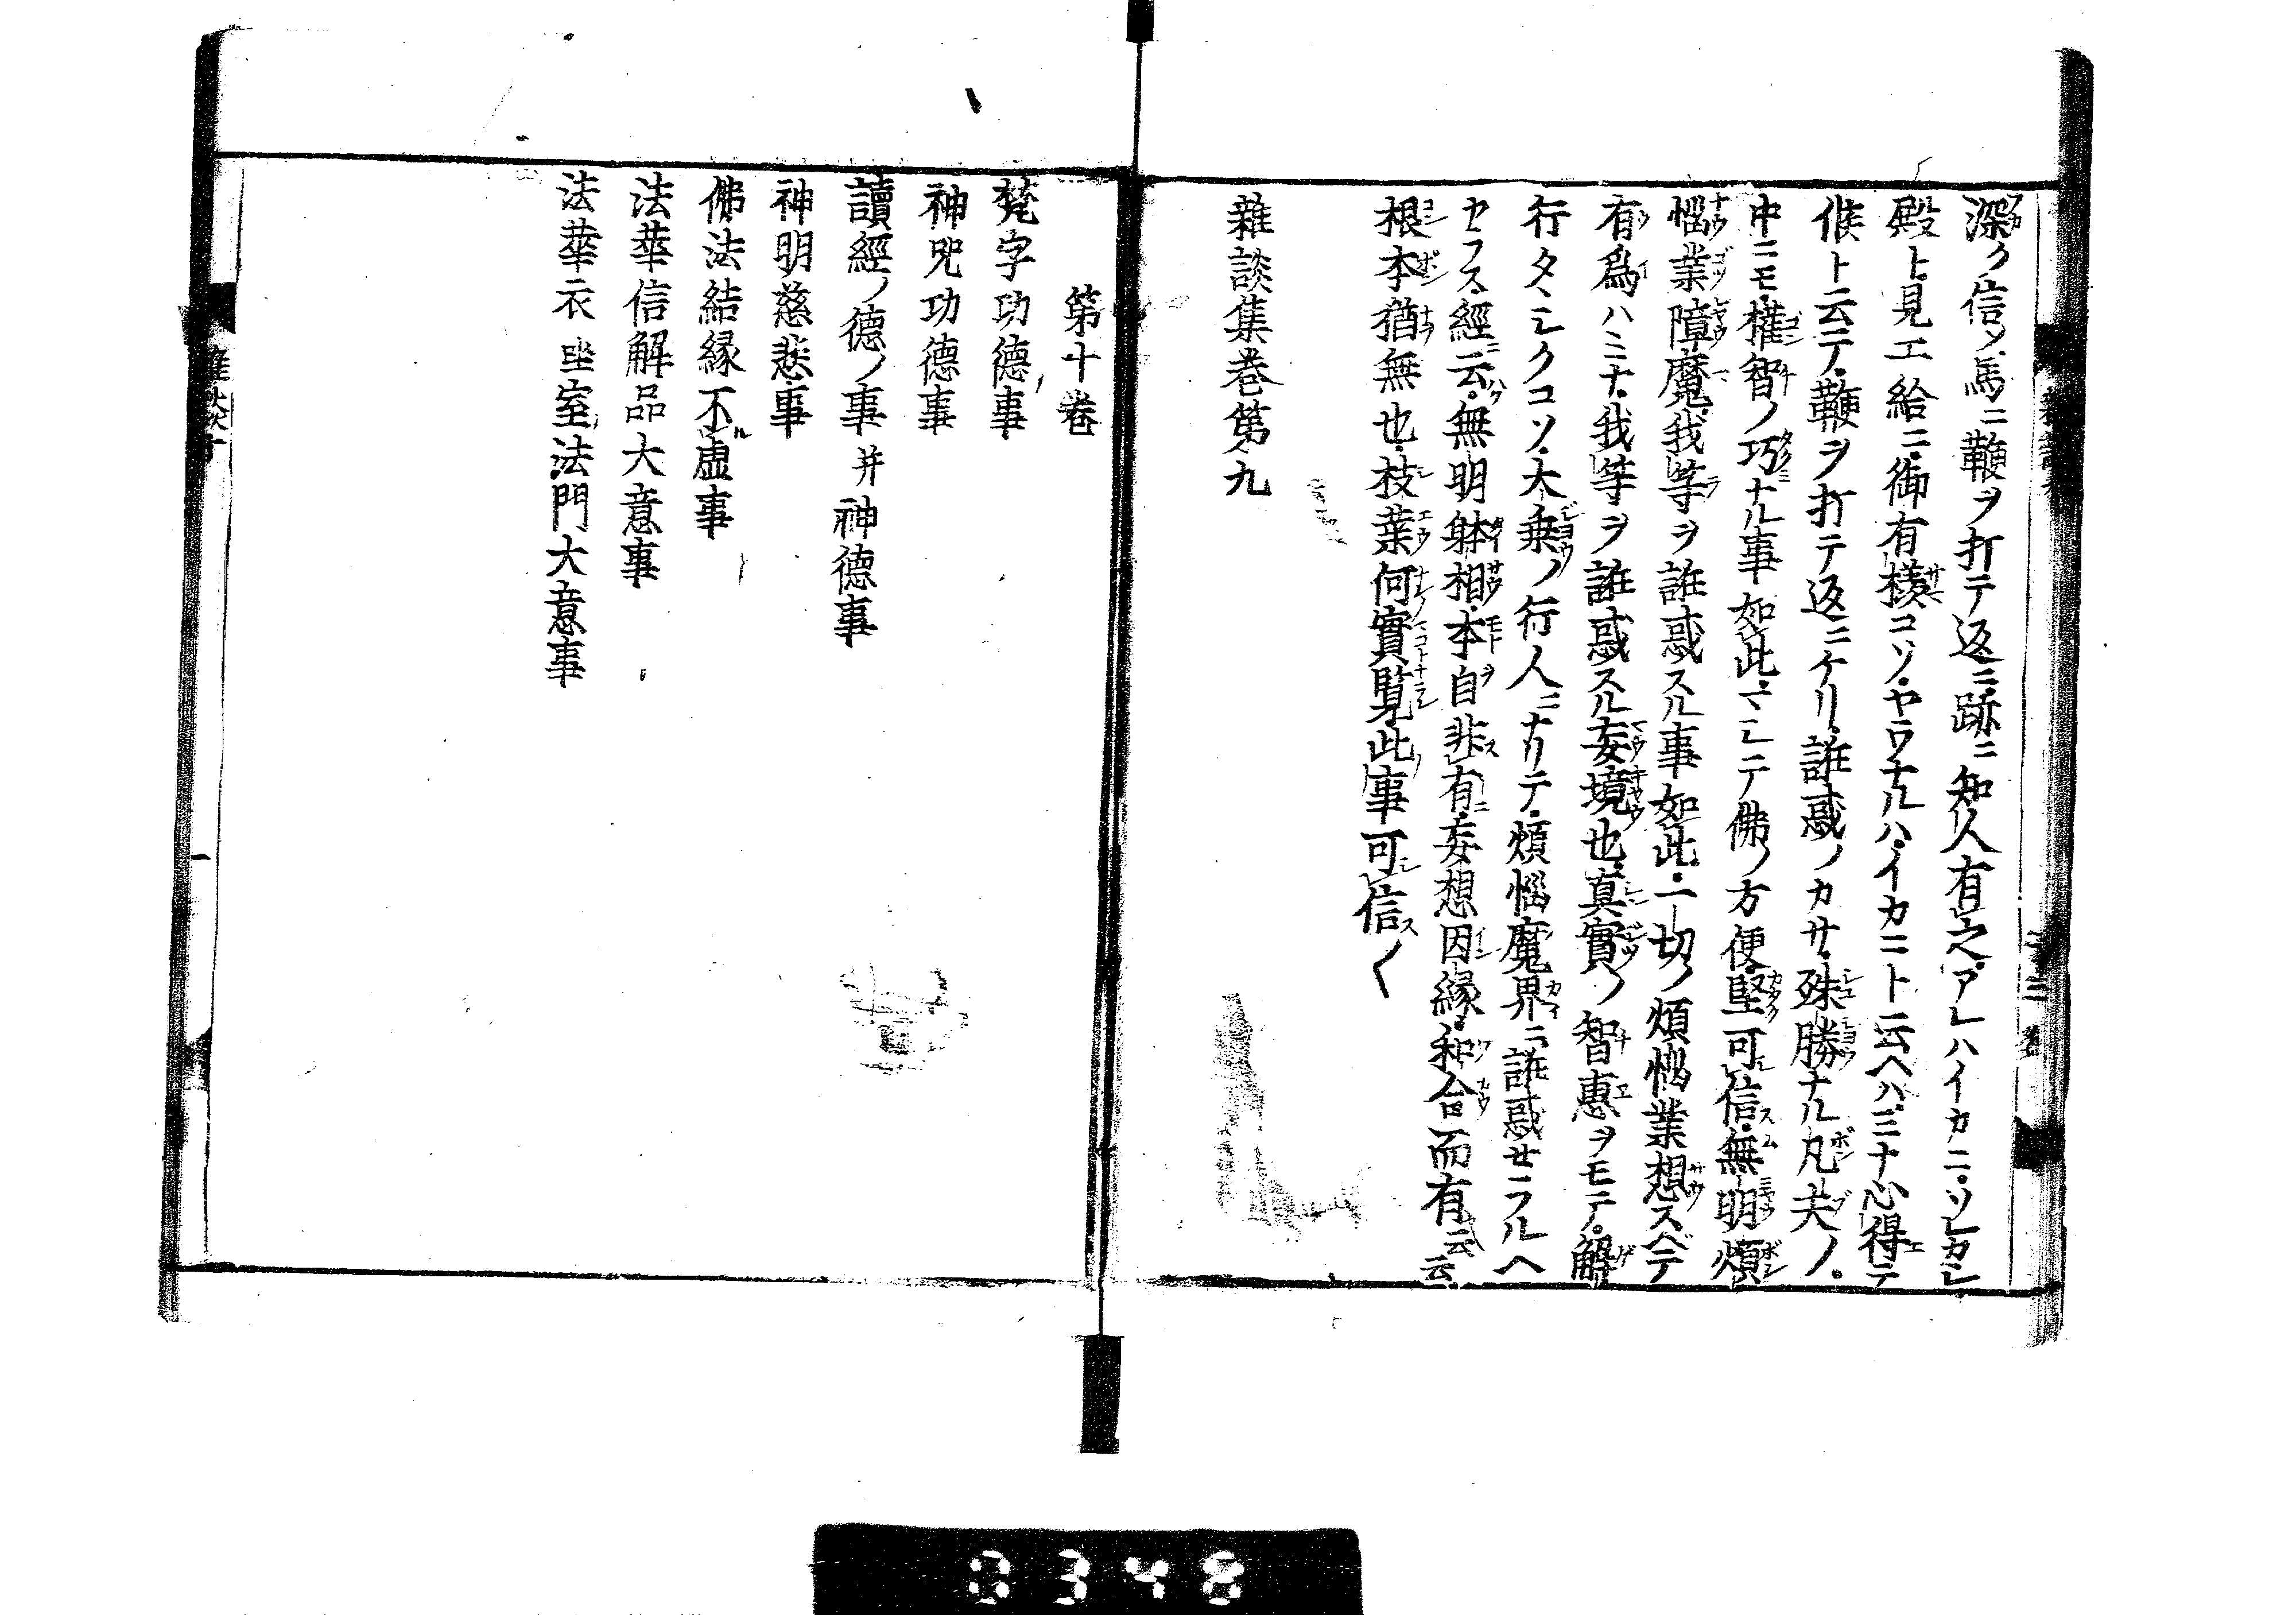 深ク信ソ馬ニ鞭ヲ打テ返ニ跡ニ知人有之アレハイカニソレカシ
殿ト見エ給ニ御有様コソヤウナルハイカニト云ヘハミナ心得テ
候ト云テ鞭ヲ打テ返ニケリ誑惑ノカサ殊勝ナル凡夫ノ
中ニモ権智ノ巧ナル事如此マシテ佛ノ方便堅可信無明煩
惱業障魔我等ヲ誑惑スル事如此一切ノ煩惱業想スベテ
有爲ハミナ我等ヲ誑惑スル妄境也真實ノ智惠ヲモテ解
行タヽシクコソ大乗ノ行人ニナリテ煩惱魔界ニ誑惑セラルヘ
カラス經云無明躰相本自非有妄想因縁和合而有云云
根本猶無也枝葉何實覧此事可信〱
雜談集巻第九
第十卷
梵字功德事
神呪功德事
讀經ノ德ノ事并神德事
神明慈悲事
佛法結縁不虚事
法華信解品大意事
法華衣坐室法門大意事
雜談十
一
0348